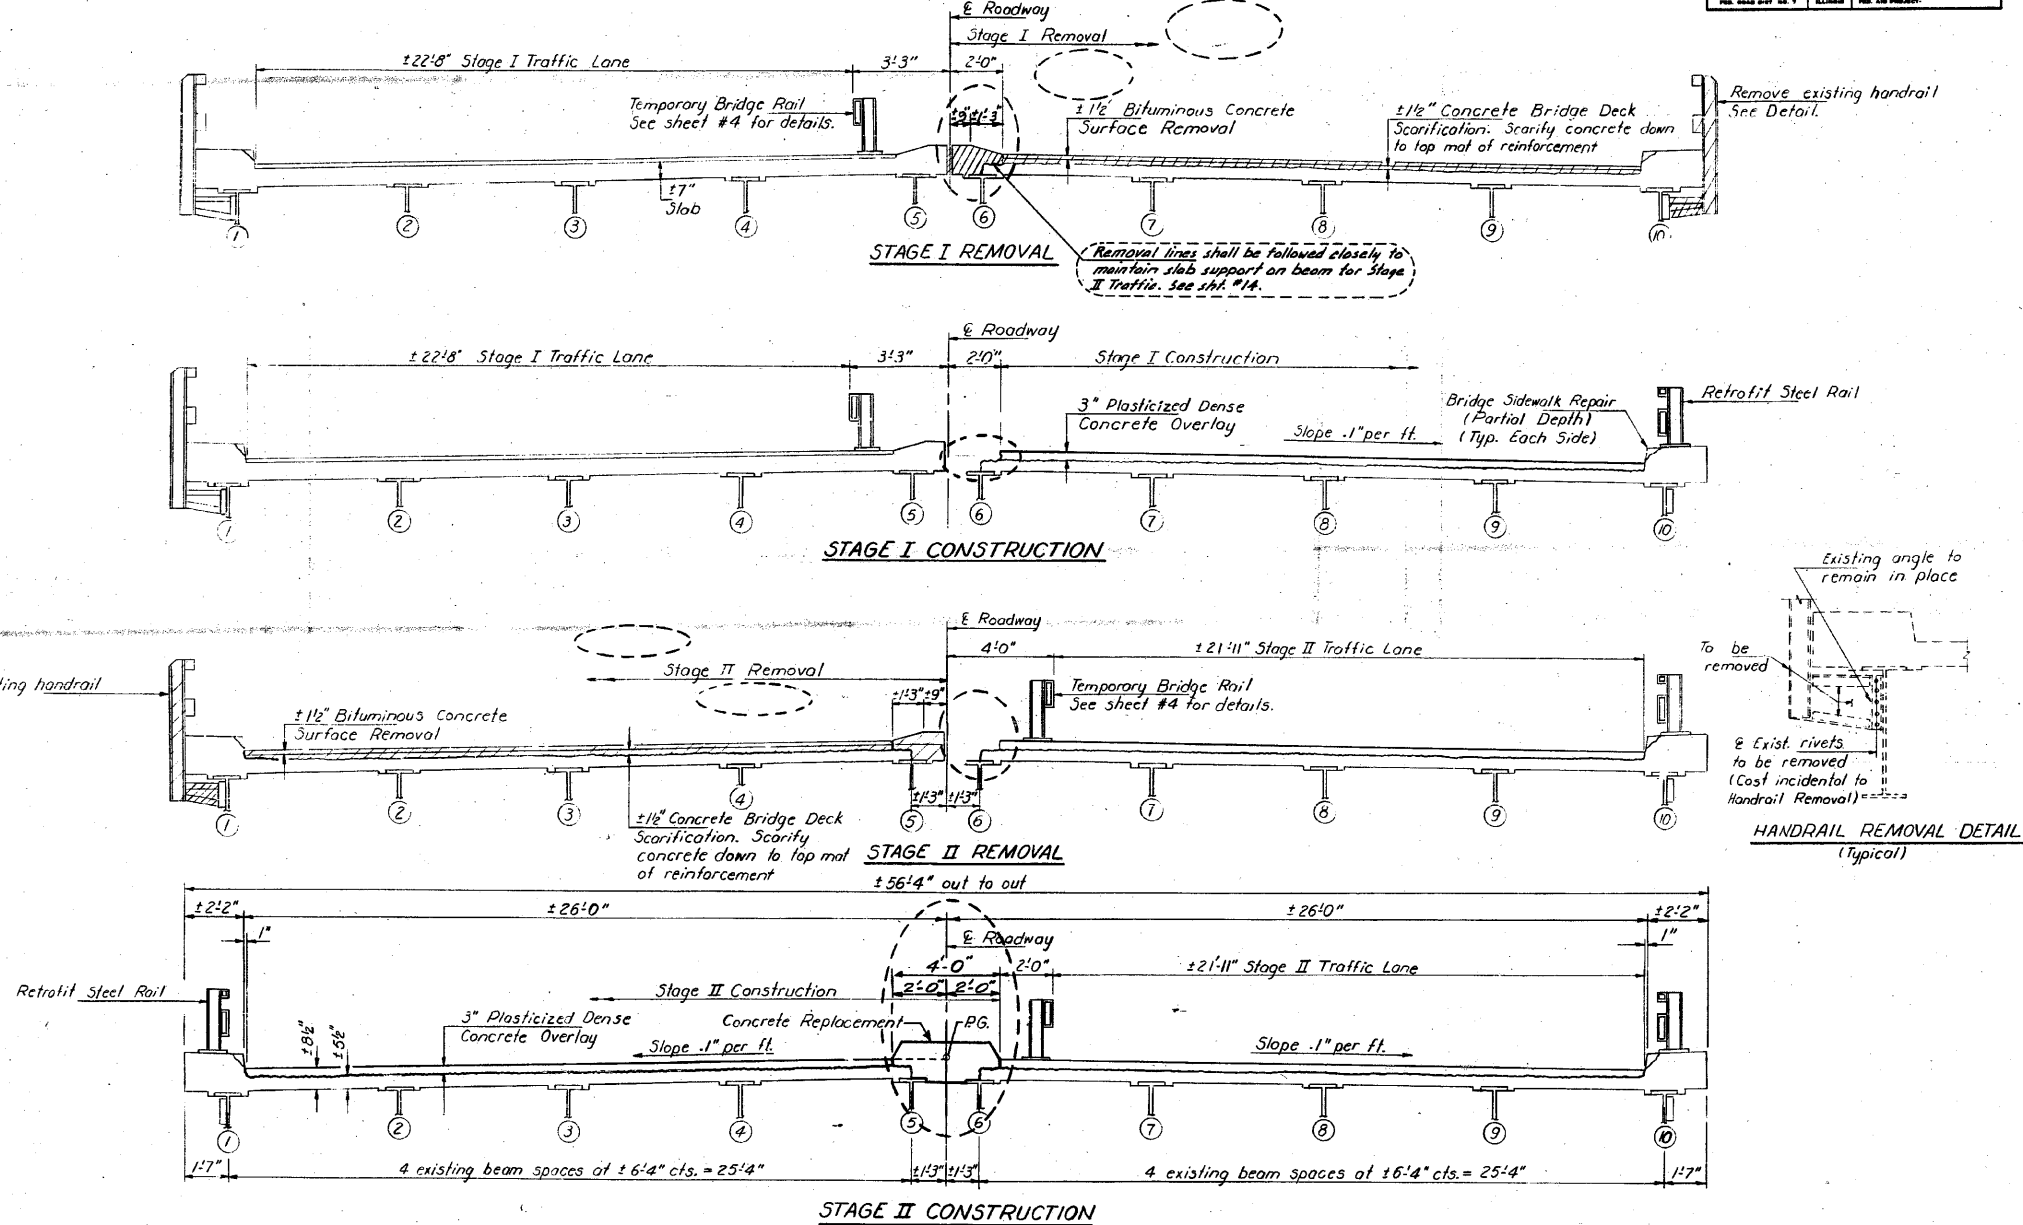 ℄ Roadway
Stage I Removal
±22'-8" Stage I Traffic Lane
3'-3"
2'-0"
Temporary Bridge Rail
See sheet #4 for details.
±9"
±1'-3"
±1½" Bituminous Concrete
Surface Removal
±1½" Concrete Bridge Deck
Scarification. Scarify concrete down
to top mat of reinforcement
Remove existing handrail
See Detail.
±7"
Slab
1
2
3
4
5
6
7
8
9
10
STAGE I REMOVAL
Removal lines shall be followed closely to
maintain slab support on beam for Stage
II Traffic. See sht. #14.
℄ Roadway
±22'-8" Stage I Traffic Lane
3'-3"
2'-0"
Stage I Construction
3" Plasticized Dense
Concrete Overlay
Slope .1" per ft.
Bridge Sidewalk Repair
(Partial Depth)
(Typ. Each Side)
Retrofit Steel Rail
1
2
3
4
5
6
7
8
9
10
STAGE I CONSTRUCTION
℄ Roadway
4'-0"
±21'-11" Stage II Traffic Lane
Stage II Removal
±1'-3"
±9"
ting handrail
Temporary Bridge Rail
See sheet #4 for details.
±1½" Bituminous Concrete
Surface Removal
±1½" Concrete Bridge Deck
Scarification. Scarify
concrete down to top mat
of reinforcement
±1'-3"
±1'-3"
1
2
3
4
5
6
7
8
9
10
STAGE II REMOVAL
Existing angle to
remain in place
To be
removed
℄ Exist. rivets
to be removed
(Cost incidental to
Handrail Removal)
HANDRAIL REMOVAL DETAIL
(Typical)
±56'-4" out to out
±2'-2"
±26'-0"
±26'-0"
±2'-2"
1"
℄ Roadway
1"
4'-0"
2'-0"
±21'-11" Stage II Traffic Lane
Retrofit Steel Rail
Stage II Construction
2'-0"
2'-0"
3" Plasticized Dense
Concrete Overlay
Concrete Replacement
P.G.
±8½"
±5½"
Slope .1" per ft.
Slope .1" per ft.
1
2
3
4
5
6
7
8
9
10
1'-7"
4 existing beam spaces at ±6'-4" cts. = 25'-4"
±1'-3"
±1'-3"
4 existing beam spaces at ±6'-4" cts. = 25'-4"
1'-7"
STAGE II CONSTRUCTION